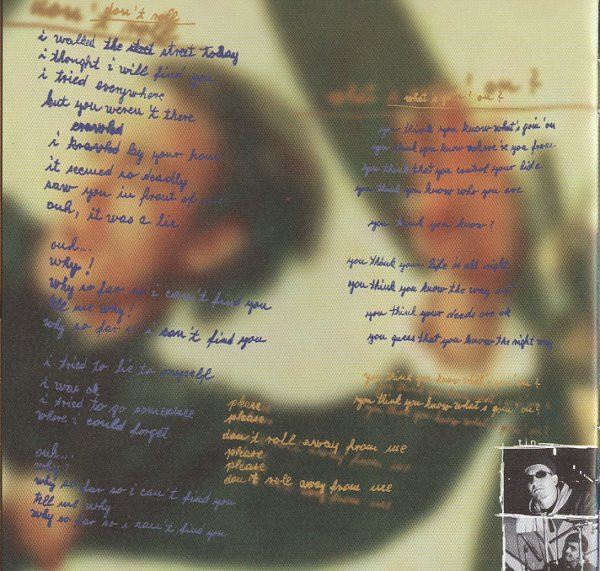 don't roll
don't roll
i walked the street street today
i thought i will find you
i tried everywhere
but you weren't there
crawled
i krawled by your house
it seemed so deadly
saw you in front of me
ouh, it was a lie
ouh...
why!
why so far so i can't find you
tell me why!
why so far so i can't find you
i tried to lie to myself
i was ok
i tried to go someplace
where i could forget
ouh...
why?
why so far so i can't find you
tell me why
why so far so i can't find you
please
please
don't roll away from me
please
please
don't roll away from me
what's goin' on?
what's goin' on?
you think you know what's goin' on
you think you know where're you from
you think that you control your life
you think you know who you are
you think you know?
you think your life is all right
you think you know the way out
you think your deeds are ok
you guess that you know the right way
you think you know what's goin' on?
you think you know what's goin' on?